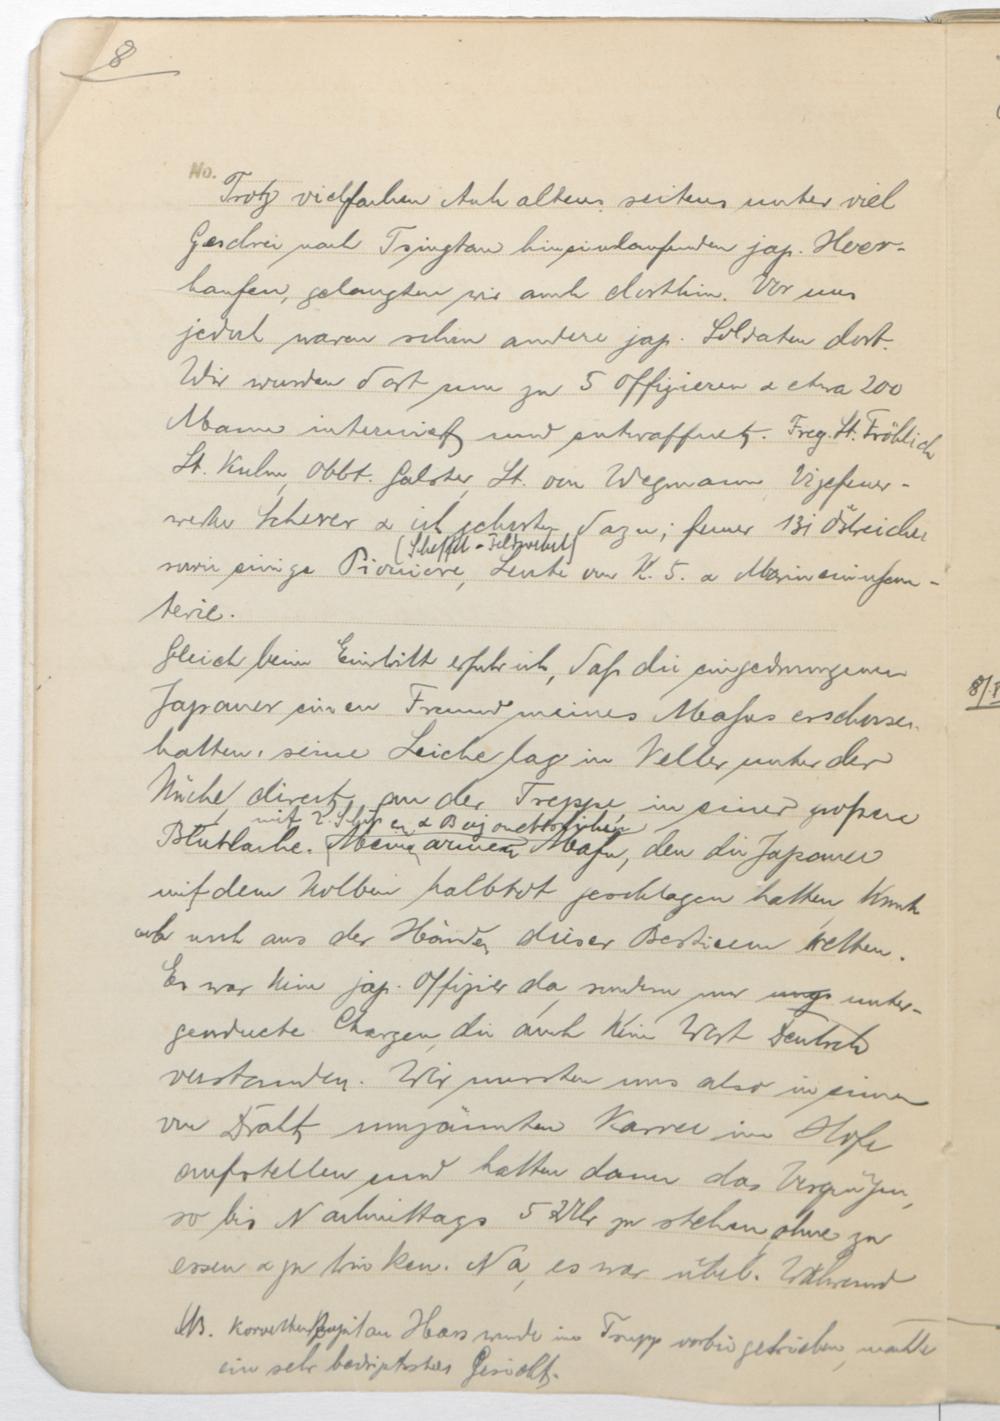 8
No.
Trotz vielfachen Anhaltens seitens unter viel
Geschrei nach Tsingtau hineinlaufenden jap. Heer-
haufen, gelangten wir auch dorthin. Vor uns
jedoch waren schon andere jap. Soldaten dort.
Wir wurden dort nun zu 5 Offizieren & etwa 200
Mann interniert und entwaffnet. Freg. Lt. Fröhlich
Lt. Kuhn, Obbt. Galster, Lt. von Wegmann, Vizefeuer-
werker Scherer & ich gehörten dazu; ferner 131 Östreicher
(Scheffel - Feldwebel)
sowie einige Pioniere, Leute von K. 5. & Marineinfan-
terie.
Gleich beim Eintritt erfuhr ich, daß die eingedrungenen
Japaner einen Freund meines Mafus erschossen
hatten, seine Leiche lag im Keller unter der
Küche, direct an der Treppe in einer großen
mit 2 & Bajonettstichen
Blutlache. Meinen armen Mafu, den die Japaner
mit dem Kolben halbtot geschlagen hatten, konnte
ich noch aus den Händen dieser Bestien retten.
Es war kein jap. Offizier da, sondern nur unter-
geordnete Chargen, die auch kein Wort Deutsch
verstanden. Wir mussten uns also in einem
von Draht umzäunten Karree im Hofe
aufstellen und hatten dann das Vergnügen,
so bis Nachmittags 5 Uhr zu stehen, ohne zu
essen & zu trinken. Na, es war übel. Während
NB. Korvettenkapitän Hass wurde im Trupp vorbei getrieben, machte
ein sehr bedripstes Gesicht.